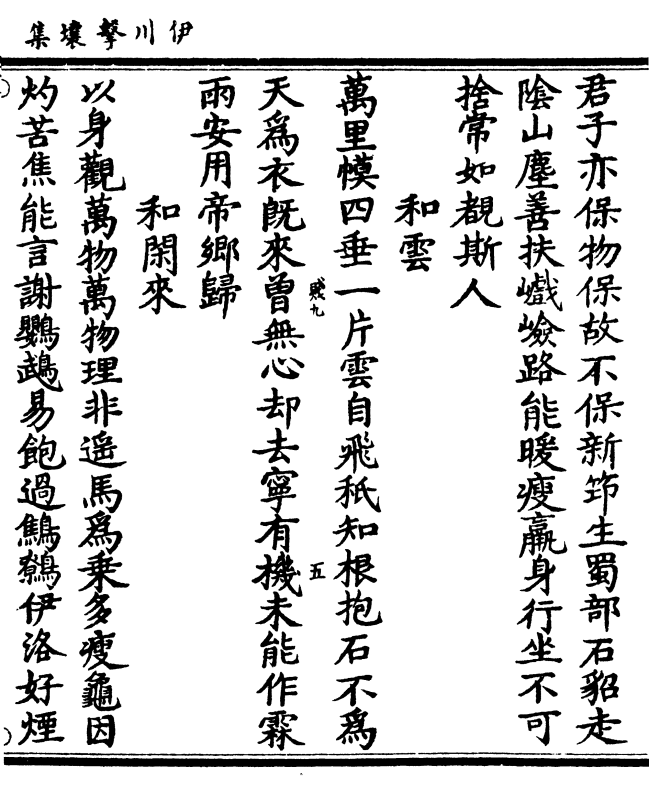 伊川擊壤集
君子亦保物保故不保新筇生蜀部石貂走
陰山塵善扶巇嶮路能暖瘦羸身行坐不可
捨常如覩斯人
和雲
萬里幙四垂一片雲自飛秖知根抱石不爲
天爲衣旣來曾無心却去寧有機未能作霖
雨安用帝鄉歸
和閑來
以身觀萬物萬物理非遥馬爲乗多瘦龜因
灼苦焦能言謝鸚鵡易飽過鷦鷯伊洛好煙
賤九
五